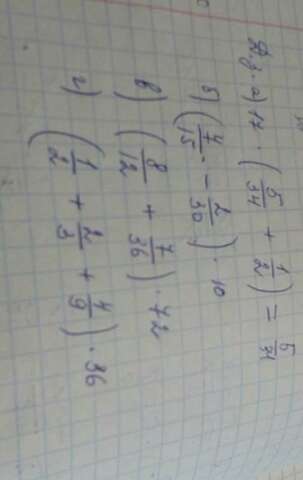 а) 17 · (5/34 + 1/2) = 5/34
б) (4/15 - 2/30) · 10
в) (8/12 + 7/36) · 72
г) (1/2 + 2/3 + 4/9) · 36